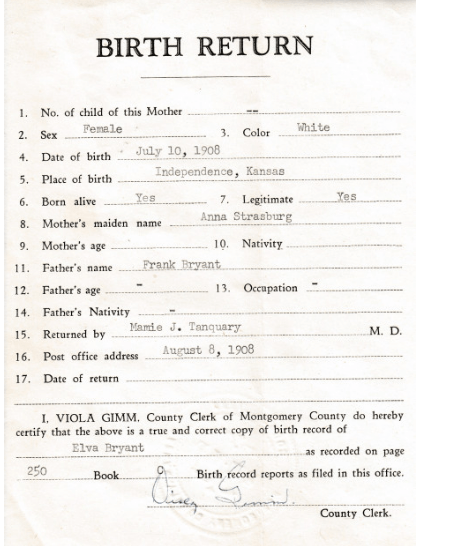 BIRTH RETURN
1. No. of child of this Mother --
2. Sex Female 3. Color White
4. Date of birth July 10, 1908
5. Place of birth Independence, Kansas
6. Born alive Yes 7. Legitimate Yes
8. Mother's maiden name Anna Strasburg
9. Mother's age 10. Nativity
11. Father's name Frank Bryant
12. Father's age - 13. Occupation -
14. Father's Nativity -
15. Returned by Mamie J. Tanquary M. D.
16. Post office address August 8, 1908
17. Date of return
I, VIOLA GIMM. County Clerk of Montgomery County do hereby
certify that the above is a true and correct copy of birth record of
Elva Bryant as recorded on page
250 Book 9 Birth record reports as filed in this office.
County Clerk.